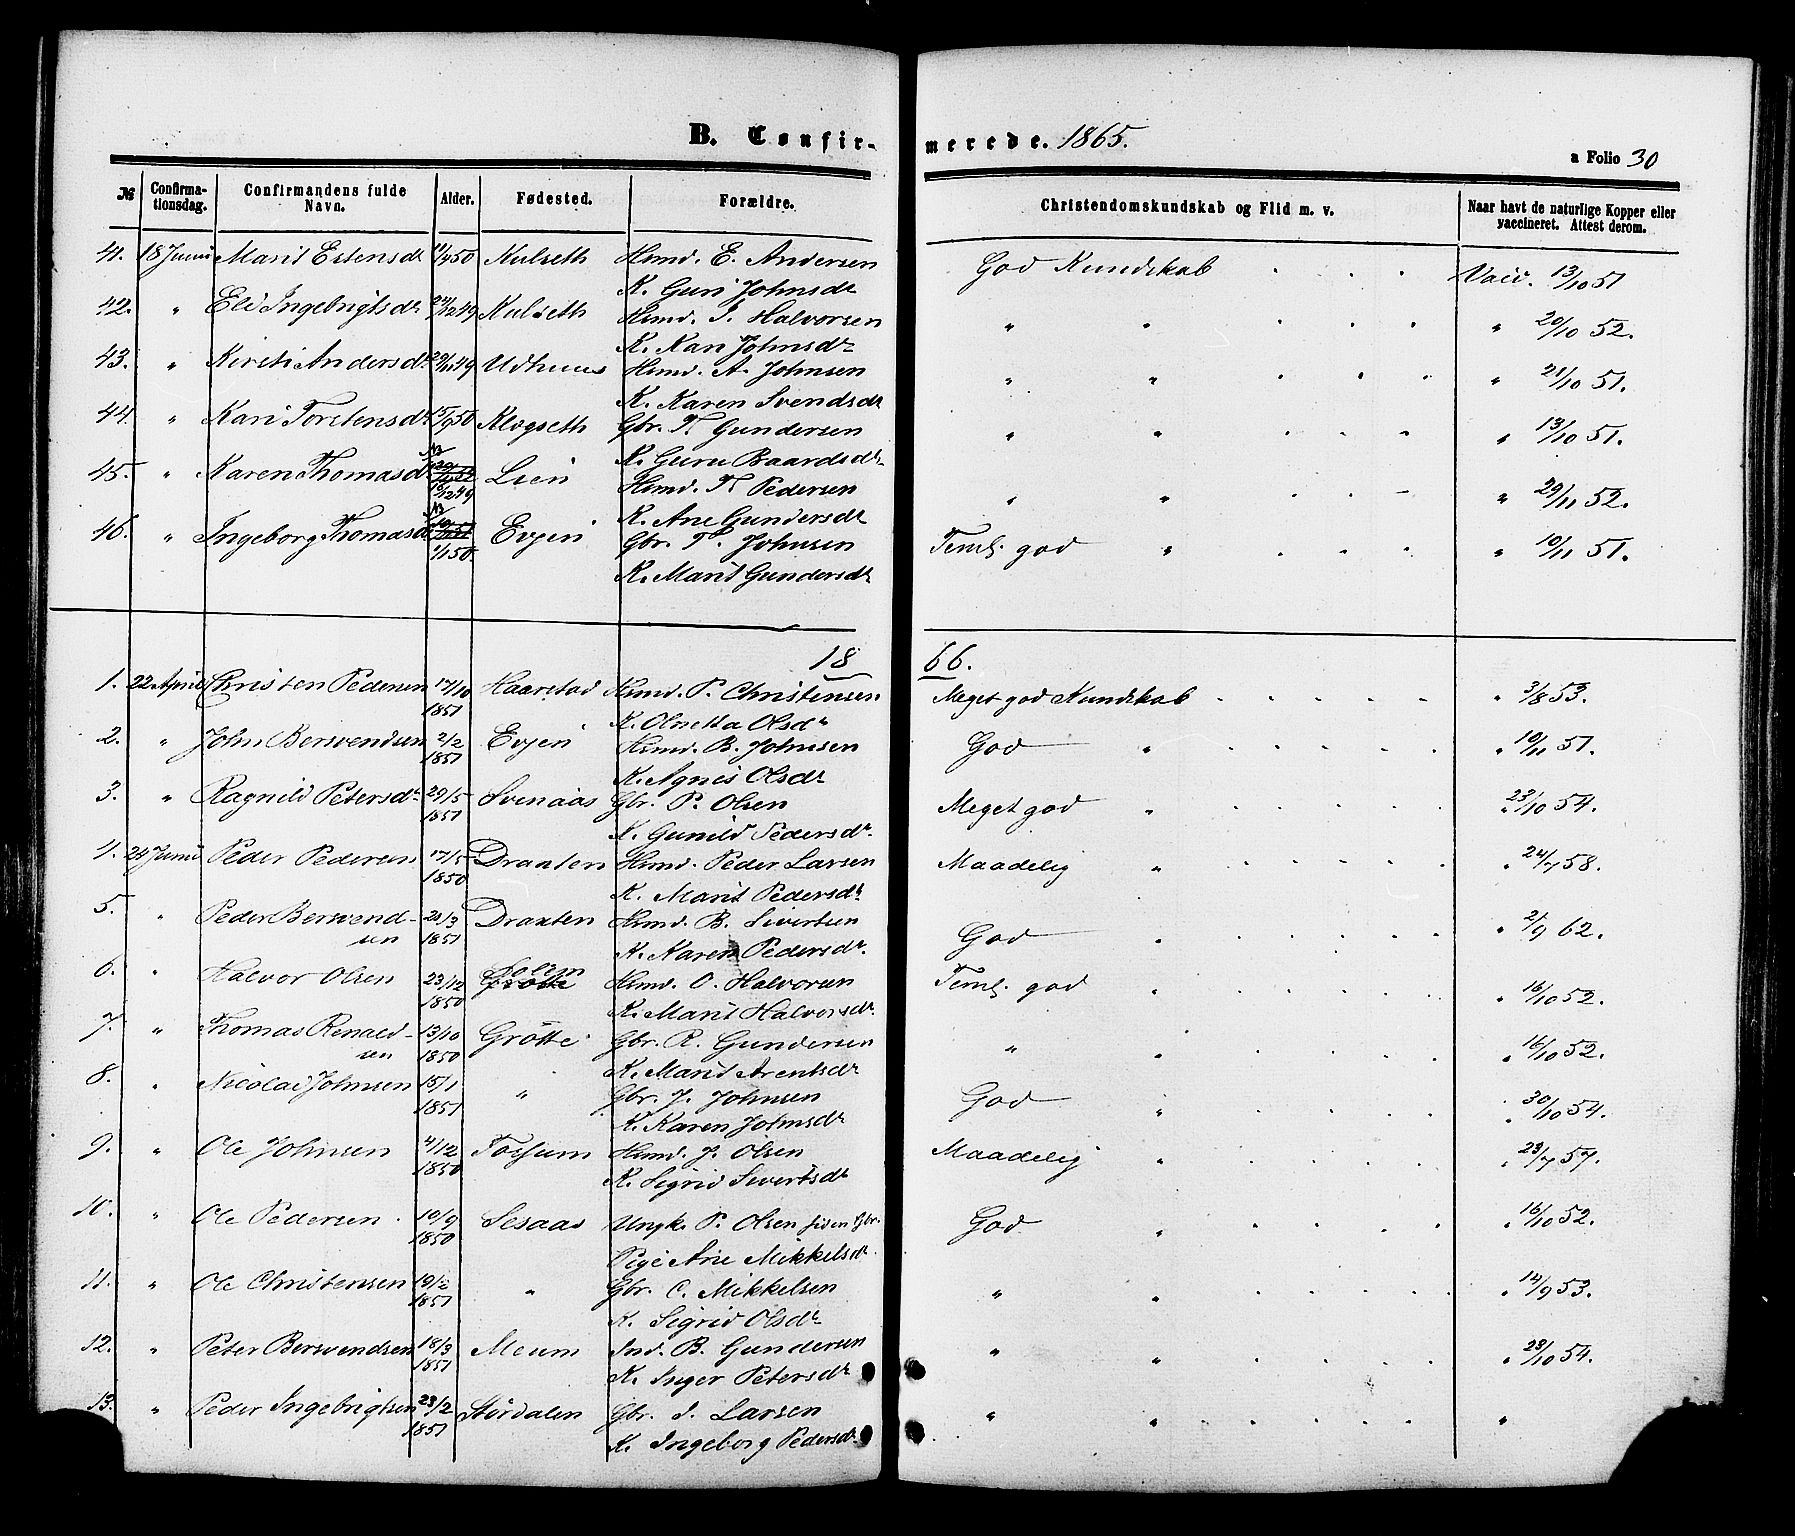 B. Confir-
merede. 1865.
a Folio 30
№
Confirma-
tionsdag.
Confirmandens fulde
Navn.
Alder.
Fødested.
Forældre.
Christendomskundskab og Flid m. v.
Naar havt de naturlige Kopper eller
vaccineret. Attest derom.
41. 18 Juni Marit Estensdr 11/4 50 Kulseth Hsmd. E. Andersen God Kundskab . . . Vacc. 13/10 51
K. Guri Johnsdr
42. " Eli Ingebrigtsdr 24/12 49 Kulseth Hsmd. I. Halvorsen " " . . . " 20/10 52.
K. Kari Johnsdr
43. " Kirsti Andersdr 29/11 49 Udhuus Hsmd. A. Johnsen " " . . . " 21/10 51.
K. Karen Svendsdr
44. " Kari Torstensdr 15/9 50 Klogseth Gbr. T. Gundersen " " . . . " 13/10 51.
K. Guru Baardsdr
45. " Karen Thomasdr 10/12 49 Lien Hsmd. T. Pedersen " " . . . " 29/11 52.
K. Ane Gundersdr
46. " Ingeborg Thomasdr 1/1 50. Evjen Gbr. T. Johnsen Teml. god " . . . " 10/11 51.
K. Marit Gundersdr
18 66.
1. 22 April Christen Pedersen 17/10 1851 Haarstad Hsmd. P. Christensen Meget god Kundskab . . . . . " 3/8 53.
K. Olnetta Olsdr
2. " John Berwendsen 2/2 1851 Evjen Hsmd. B. Johnsen God " . . . . . " 10/11 51.
K. Agnis Olsdr
3. " Ragnild Petersdr 29/5 1851 Svenaas Gbr. P. Olsen Meget god " . . . . . " 23/10 54.
K. Gunild Pedersdr.
4. 24 Juni Peder Pedersen 17/5 1850 Draxten Hsmd. Peder Larsen Maadelig " . . . . . " 24/7 58.
K. Marit Pedersdr
5. " Peder Berwend-
sen 20/3 1851 Draxten Hsmd. B. Sivertsen God " . . . . . " 2/9 62.
K. Karen Pedersdr.
6. " Halvor Olsen 23/12 1850 Solem Hsmd. O. Halvorsen Teml. god " . . . . . " 16/10 52.
K. Marit Halvorsdr.
7. " Thomas Renald-
sen 13/10 1850 Grötte Gbr. R. Gundersen " " . . . . . " 16/10 52.
K. Marit Arentsdr
8. " Nicolai Johnsen 15/1 1851 " Gbr. J. Johnsen God " . . . . . " 30/10 54.
K. Karen Johnsdr
9. " Ole Johnsen 4/12 1850 Fossum Hsmd. J. Olsen Maadelig " . . . . . " 23/7 57.
K. Sigrid Sivertsdr
10. " Ole Pedersen. 10/9 1850 Sesaas Ungk. P. Olsen siden Gbr. God " . . . . . " 16/10 52.
Pige Ane Mikkelsdr.
11. " Ole Christensen 19/2 1851 " Gbr. C. Mikkelsen " " . . . . . " 14/9 53.
K. Sigrid Olsdr
12. " Peter Berwendsen 18/3 1851 Meum Ind. B. Gundersen " " . . . . . " 23/10 54.
K. Inger Petersdr
13. " Peder Ingebrigtsen 23/2 1851 Stördalen Gbr. I. Larsen " " . . . . . "
K. Ingeborg Pedersdr.